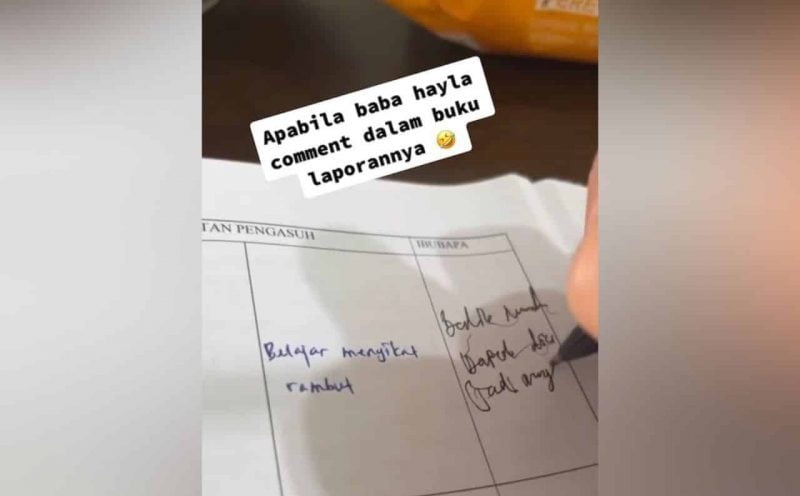 Apabila baba hayla
comment dalam buku
laporannya 🤣
TAN PENGASUH
IBUBAPA
Belajar menyikat
rambut
Balik rumah
Dapok
Jadi